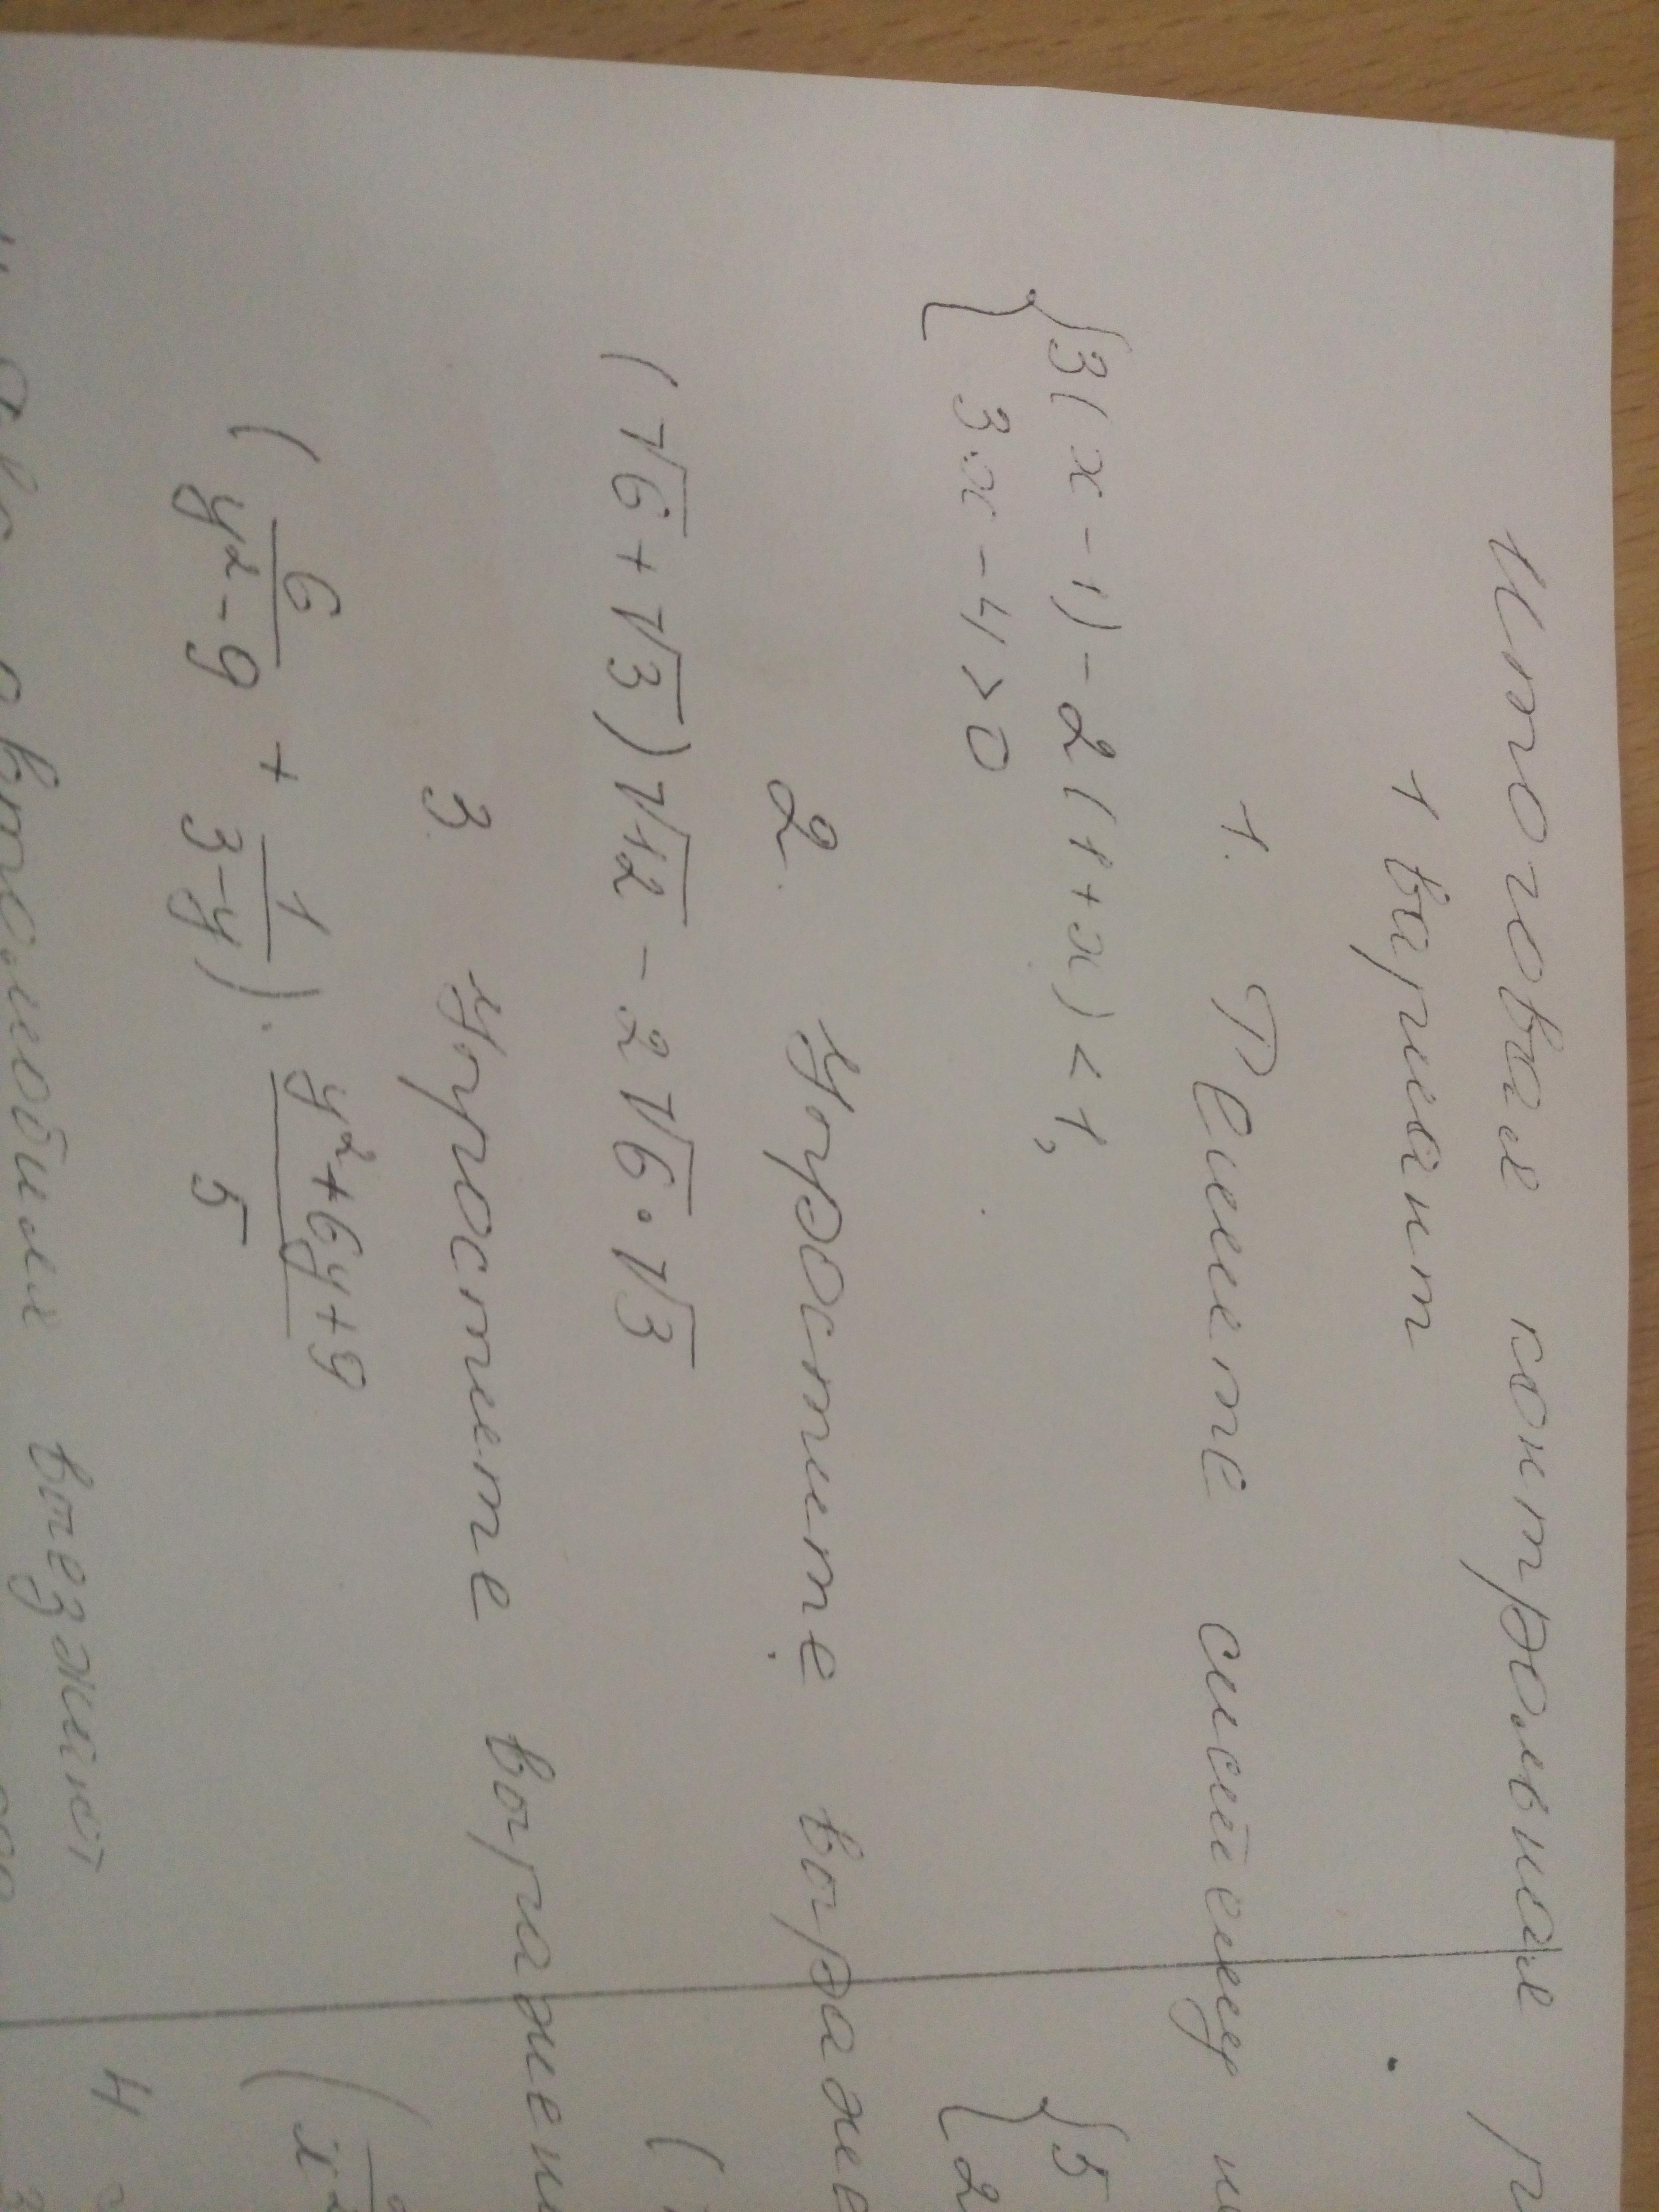 Итоговая контрольная
1 вариант
1. Решите систему
{3(x-1)-2(1+x)<1,
3x-4>0
2. Упростите выраже
(√6+√3)√12-2√6·√3
3 Упростите выражен
(6/(y²-9) + 1/(3-y)) · (y²+6y+9)/5
автомобиля выезжают
{5
2
(
(x²
4